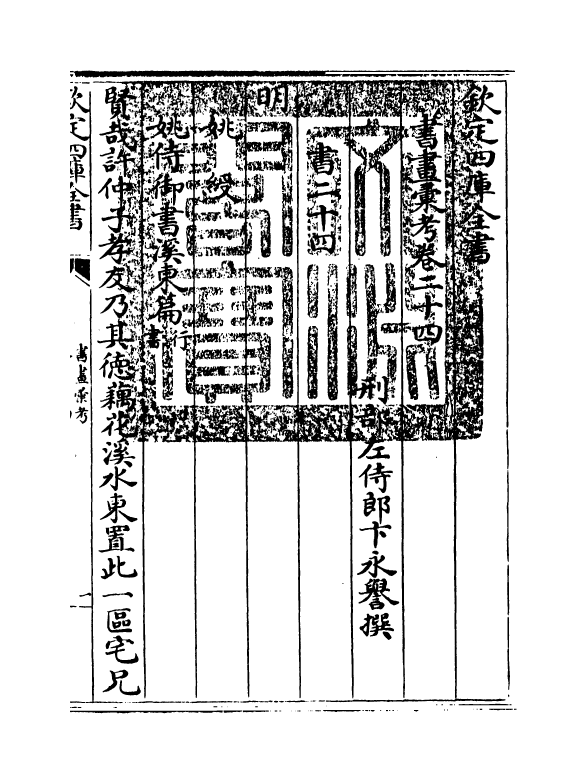 欽定四庫全書
書畫彙考卷二十四
刑部左侍郎卞永譽撰
書二十四
明
姚綬
姚侍御書溪東篇行書
賢哉許仲子孝友乃其徳藕花溪水東置此一區宅兄
欽定四庫全書
書畫彙考
一
文淵閣寶